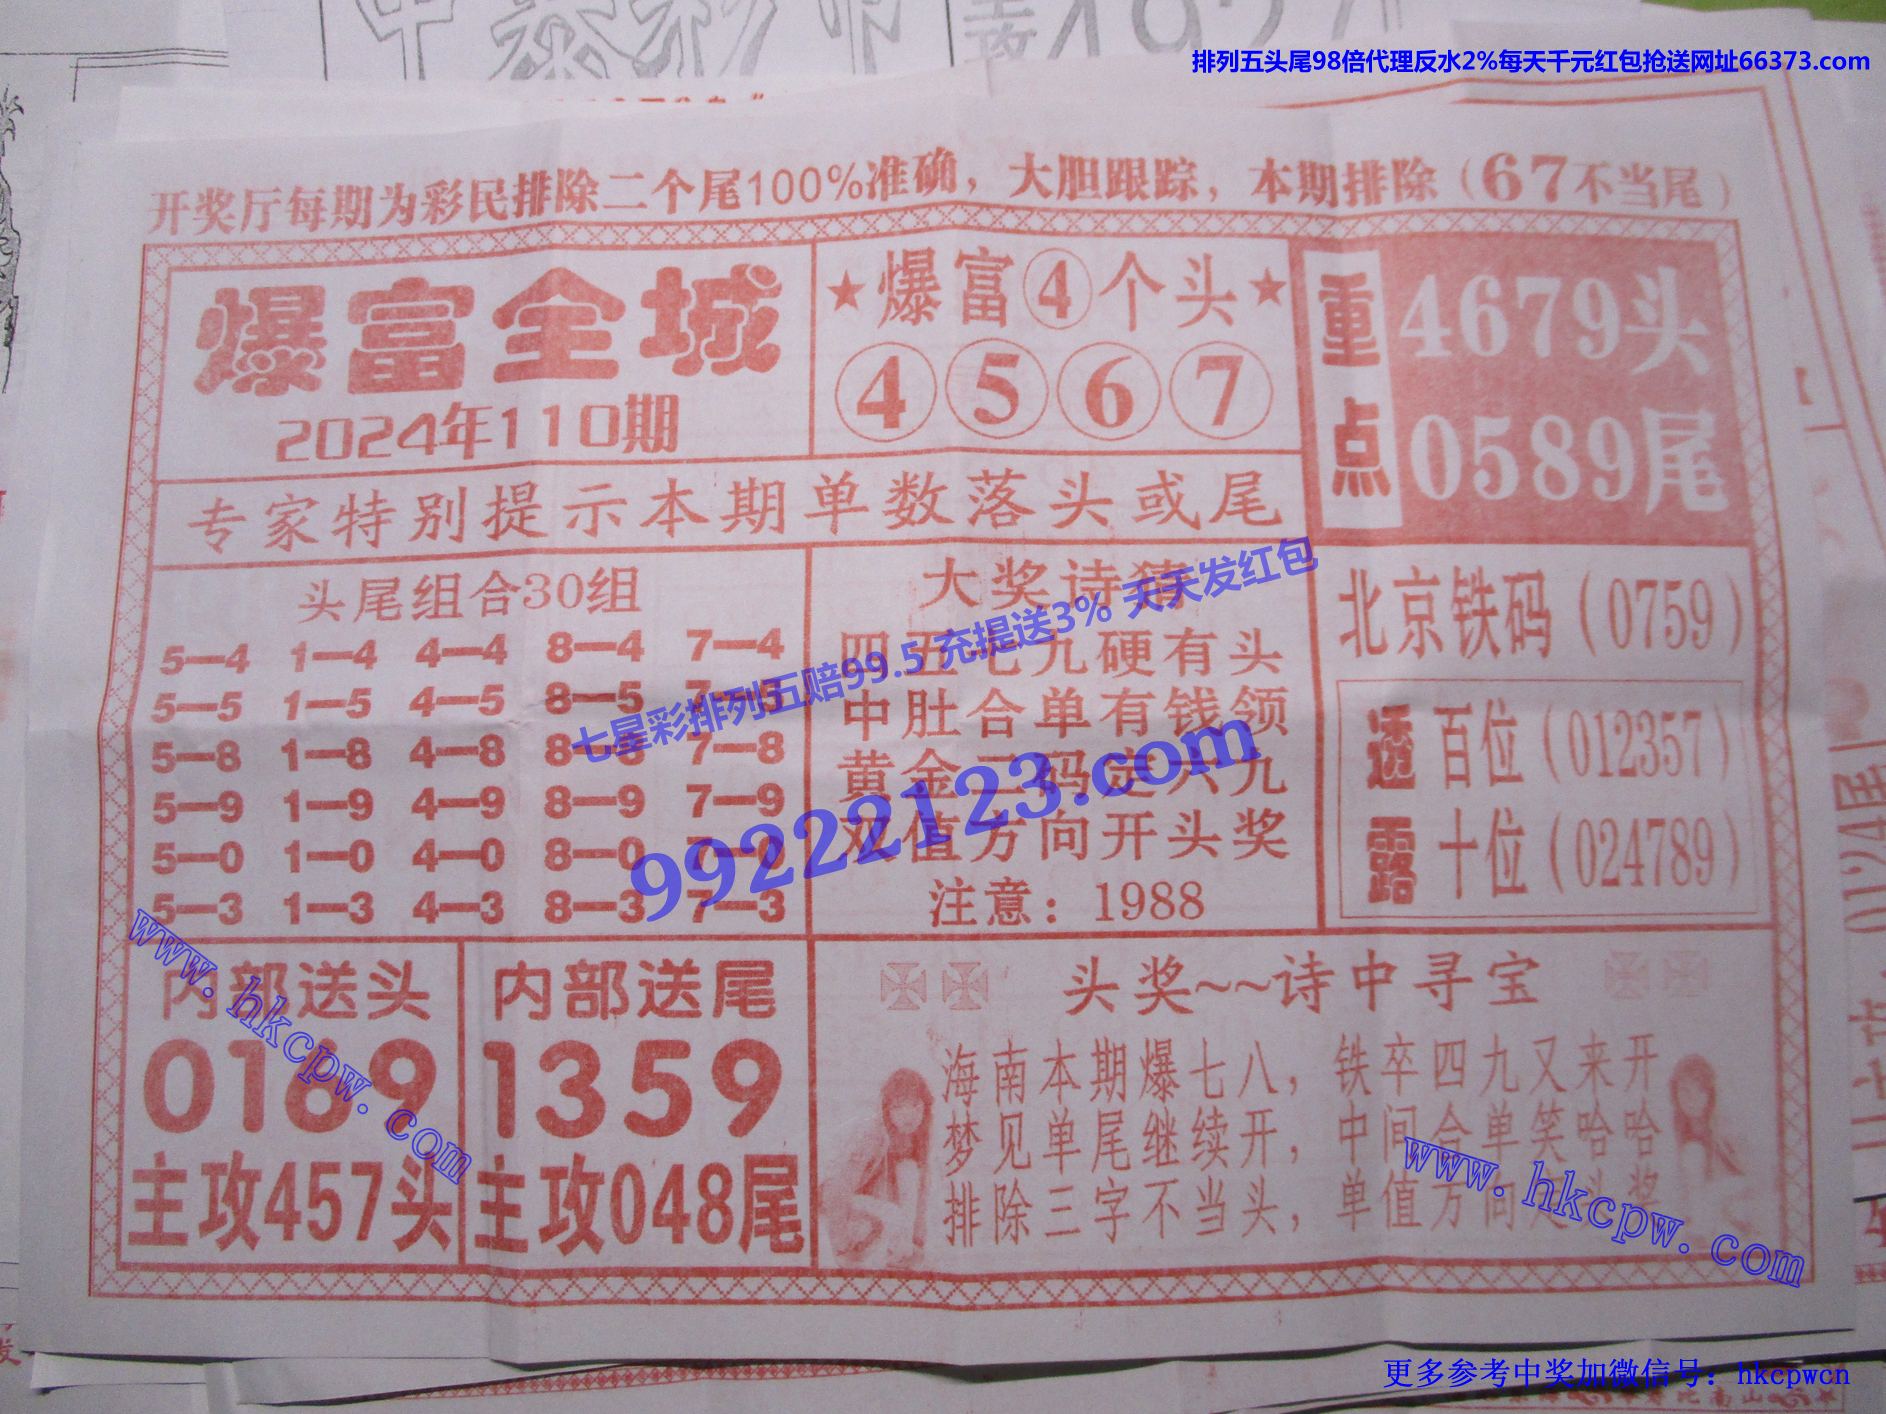 排列五头尾98倍代理反水2%每天千元红包抢送网址66373.com
开奖厅每期为彩民排除二个尾100%准确，大胆跟踪，本期排除（67不当尾）
爆富全城
2024年110期
★爆富④个头★
④⑤⑥⑦
重点
4679头
0589尾
专家特别提示本期单数落头或尾
头尾组合30组
5—4 1—4 4—4 8—4 7—4
5—5 1—5 4—5 8—5 7—5
5—8 1—8 4—8 8—8 7—8
5—9 1—9 4—9 8—9 7—9
5—0 1—0 4—0 8—0 7—0
5—3 1—3 4—3 8—3 7—3
大奖诗猜
四五七九硬有头
中肚合单有钱领
黄金二码定六九
双值方向开头奖
注意：1988
北京铁码（0759）
透露
百位（012357）
十位（024789）
七星彩排列五赔99.5 充提送3% 天天发红包
99222123.com
内部送头
0169
主攻457头
内部送尾
1359
主攻048尾
头奖~~诗中寻宝
海南本期爆七八，铁卒四九又来开
梦见单尾继续开，中间合单笑哈哈
排除三字不当头，单值方向定头奖
www.hkcpw.com
www.hkcpw.com
0124尾
更多参考中奖加微信号：hkcpwcn